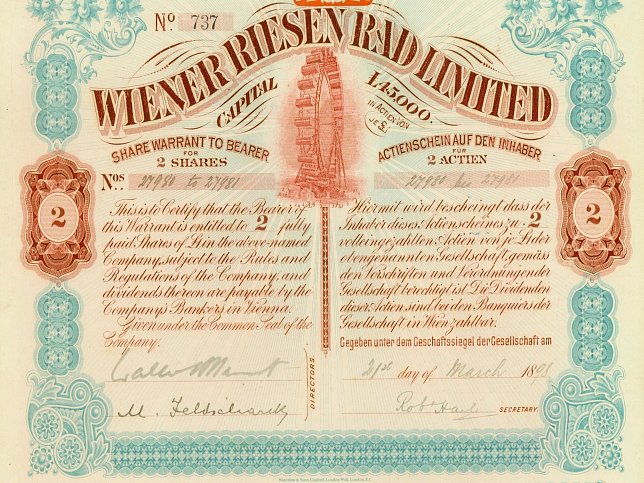 Nº 737
WIENER RIESEN RAD LIMITED
CAPITAL £45,000.
IN ACTIEN VON
JE £1.
SHARE WARRANT TO BEARER
FOR
2 SHARES
Nos. 27980 to 27981
2
This is to Certify that the Bearer of
this Warrant is entitled to 2 fully
paid Shares of £1 in the above-named
Company, subject to the Rules and
Regulations of the Company, and
dividends thereon are payable by the
Company's Bankers in Vienna.
Given under the Common Seal of the
Company.
M. Feldscharek
DIRECTORS.
ACTIENSCHEIN AUF DEN INHABER
FÜR
2 ACTIEN
27980 bis 27981
Hiermit wird bescheinigt dass der
Inhaber dieses Actienscheines zu 2
volleingezahlten Actien von je £1 der
obenbenannten Gesellschaft, gemäss
den Vorschriften und Verordnungen der
Gesellschaft berechtigt is. Die Dividenden
dieser Actien sind bei den Banquiers der
Gesellschaft in Wien zahlbar.
Gegeben unter dem Geschaftssiegel der Gesellschaft am
21st day of March 1898
SECRETARY.
2
Waterlow & Sons Limited, London Wall, London, E.C.